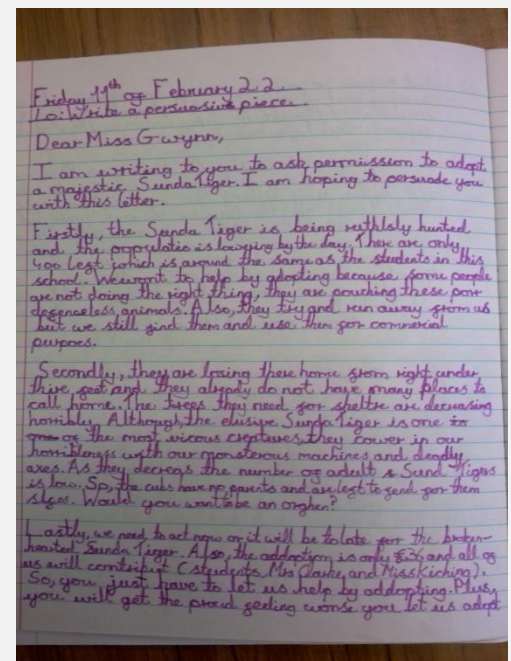 Friday 11th of February 22
Lo: Write a persuasive piece.
Dear Miss Gwynn,
I am writing to you to ask permission to adopt
a majestic Sunda Tiger. I am hoping to persuade you
with this letter.
Firstly, the Sunda Tiger is being ruthlsly hunted
and the populatio is lowering by the day. There are only
400 left which is around the same as the students in this
school. We want to help by adopting because some people
are not doing the right thing, they are pouching these porr
defenseless animals. Also, they try and run away from us
but we still find them and use them for commercial
purpoes.
Secondly, they are losing there home from right under
thire feet and they already do not have many places to
call home. The trees they need for sheltre are decreasing
horribley. Although, the elusive Sunda Tiger is one
of the most vicous creatures, they cower in our
horribleness with our monsterous machines and deadly
axes. As they decregs the number of adult Sund Tigers
is low. So, the cubs have no parents and are left to fend for them
slfes. Would you want to be an orphen?
Lastly, we need to act now or it will be to late for the broken-
hearted Sunda Tiger. Also, the addoction is only and all of
us will contribut (students, Mrs Clarke, and Miss Kiching).
So, you just have to let us help by addopting. Plus,
you will get the proud feeling let us adopt